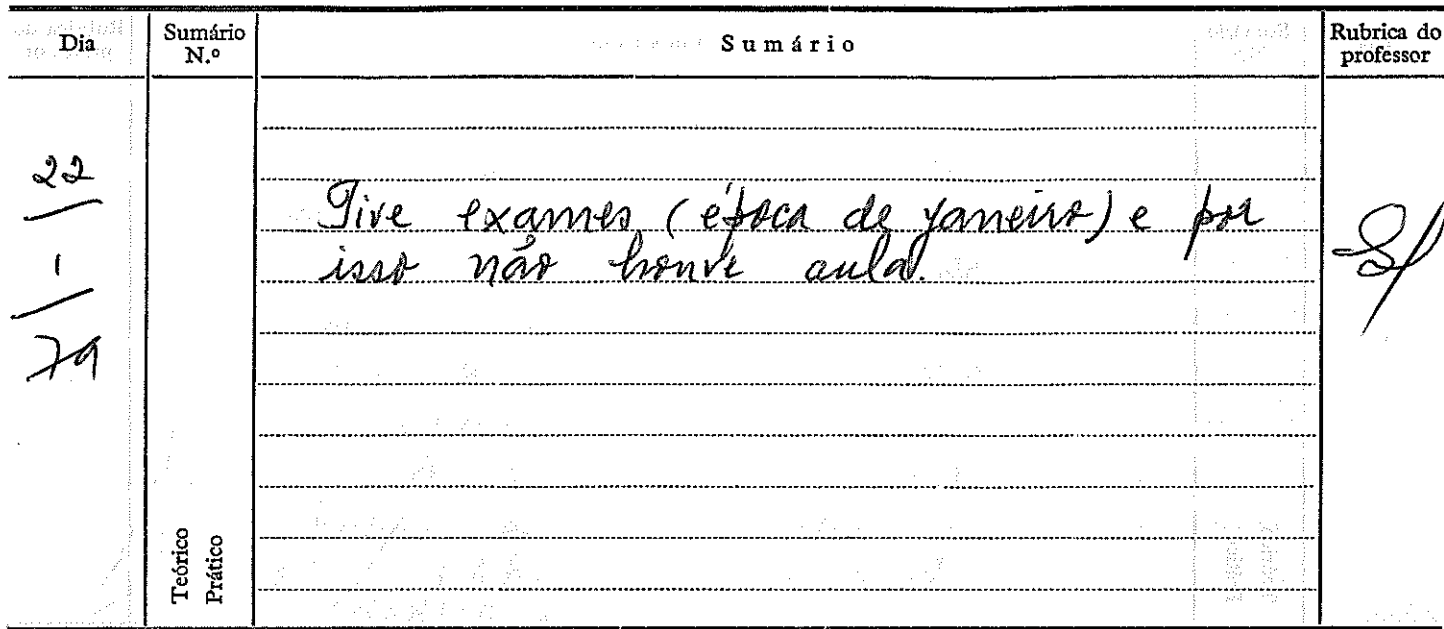 Dia
Sumário
N.º
Sumário
Rubrica do
professor
22
1
79
Tive exames (época de janeiro) e por
isso não houve aula.
Teórico
Prático